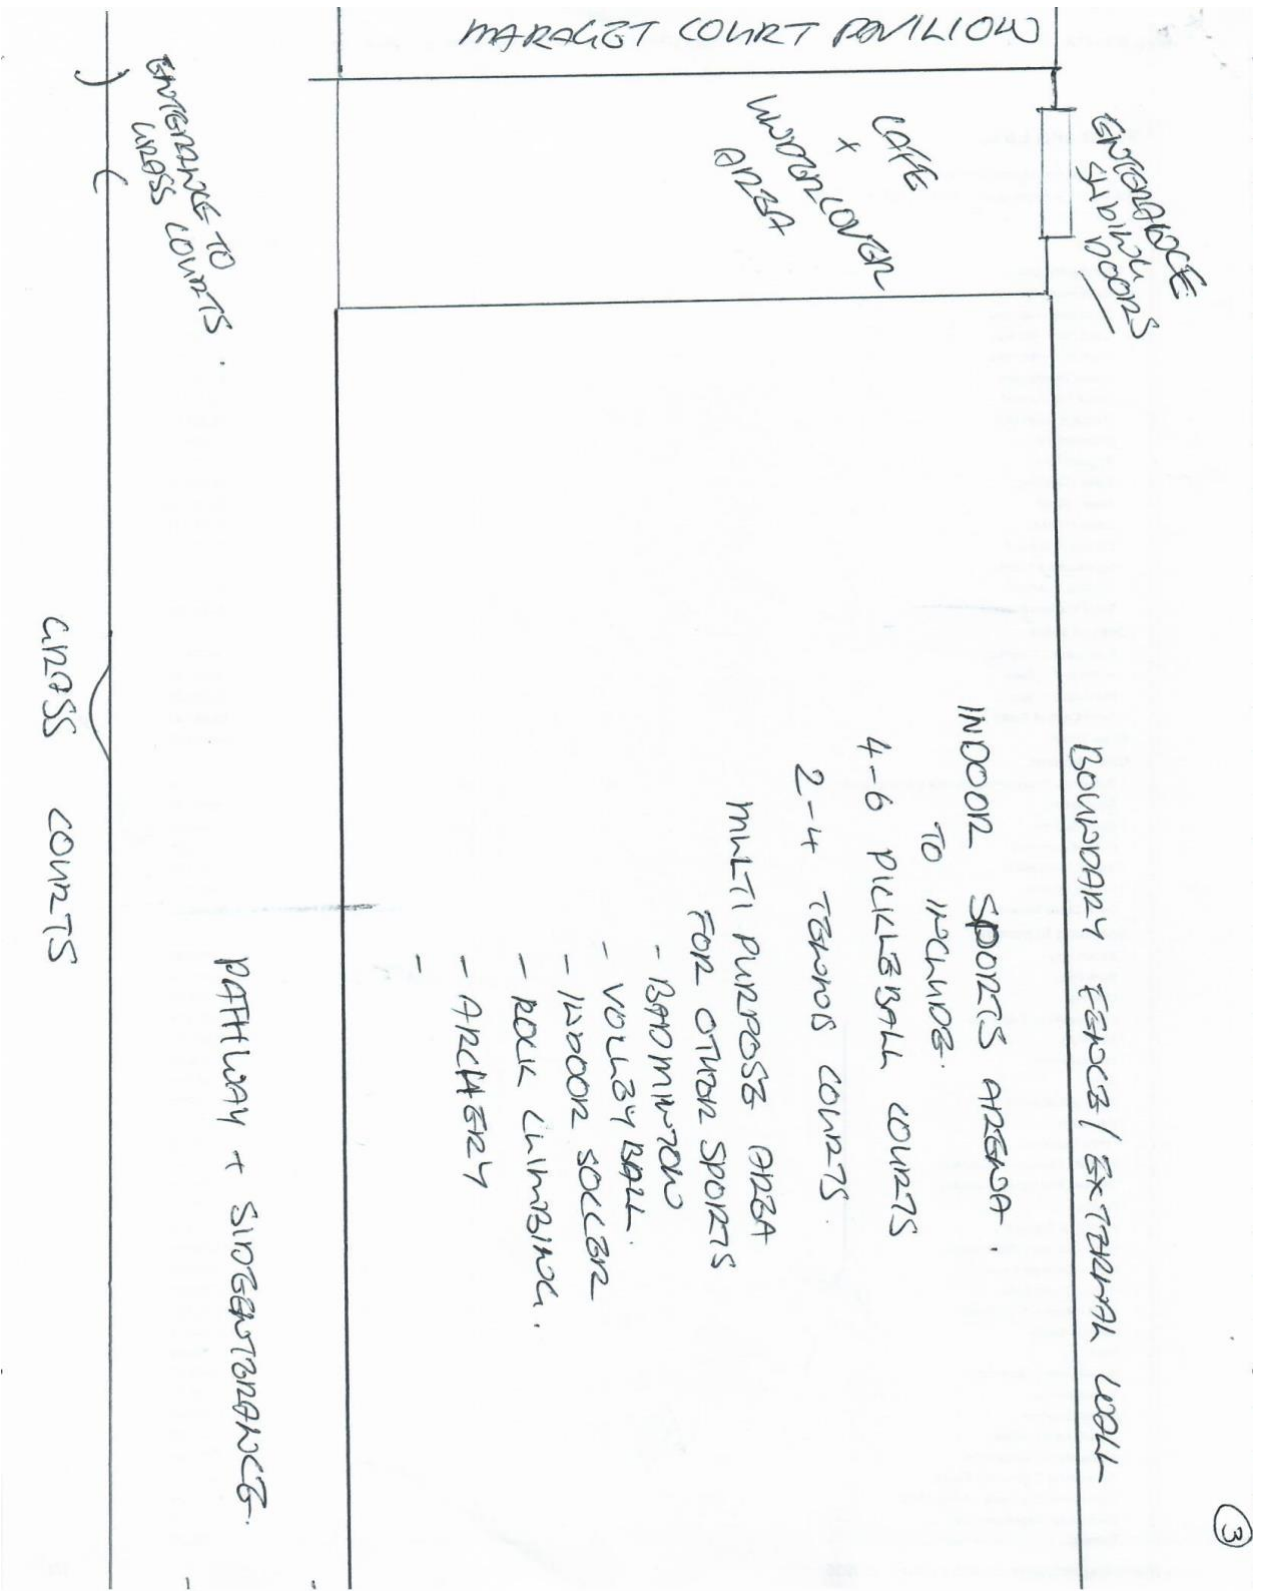 MARAGET COURT PAVILION
ENTERANCE
SLIDING
DOORS
CAFE
+
UNDERCOVER
AREA
ENTERANCE TO
GRASS COURTS.
BOUNDARY FENCE / EXTERNAL WALL
INDOOR SPORTS ARENA.
TO INCLUDE.
4-6 PICKLEBALL COURTS
2-4 TENNIS COURTS.
MULTI PURPOSE AREA
FOR OTHER SPORTS
- BADMINTON
- VOLLEYBALL.
- INDOOR SOCCER
- ROCK CLIMBING.
- ARCHERY
-
PATHWAY + SIDE ENTERANCE.
GRASS COURTS
3